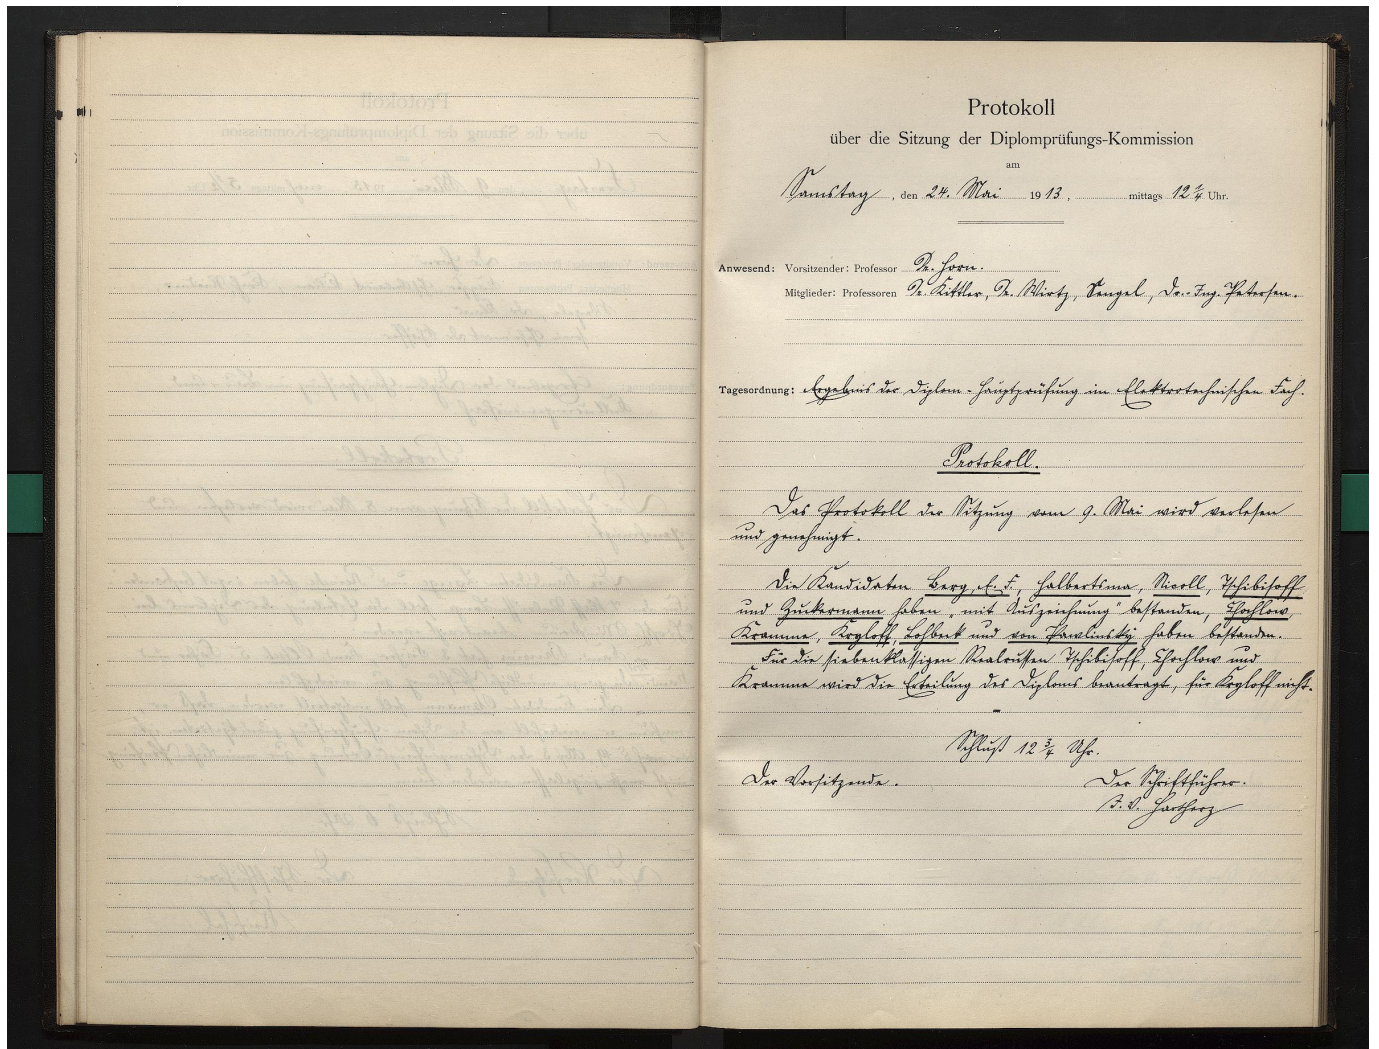 Protokoll
über die Sitzung der Diplomprüfungs-Kommission
am
Samstag, den 24. Mai 1913, mittags 12 1/4 Uhr.
Anwesend: Vorsitzender: Professor Dr. Horn.
Mitglieder: Professoren Dr. Kittler, Dr. Wirtz, Sengel, Dr.-Ing. Petersen.
Tagesordnung: Ergebnis der Diplom-Hauptprüfung im Elektrotechnischen Fach.
Protokoll.
Das Protokoll der Sitzung vom 9. Mai wird verlesen
und genehmigt.
Die Kandidaten Berg, E. F., Halbertsma, Nicoll, Tschibisoff
und Zuckermann haben „mit Auszeichnung" bestanden, Chochlow,
Kramme, Kryloff, Lohbeck und von Pawlinsky haben bestanden.
Für die siebenklassigen Realrussen Tschibisoff, Chochlow und
Kramme wird die Erteilung des Diploms beantragt, für Kryloff nicht.
Schluß 12 3/4 Uhr.
Der Vorsitzende. Der Schriftführer.
I. V. Hartherz